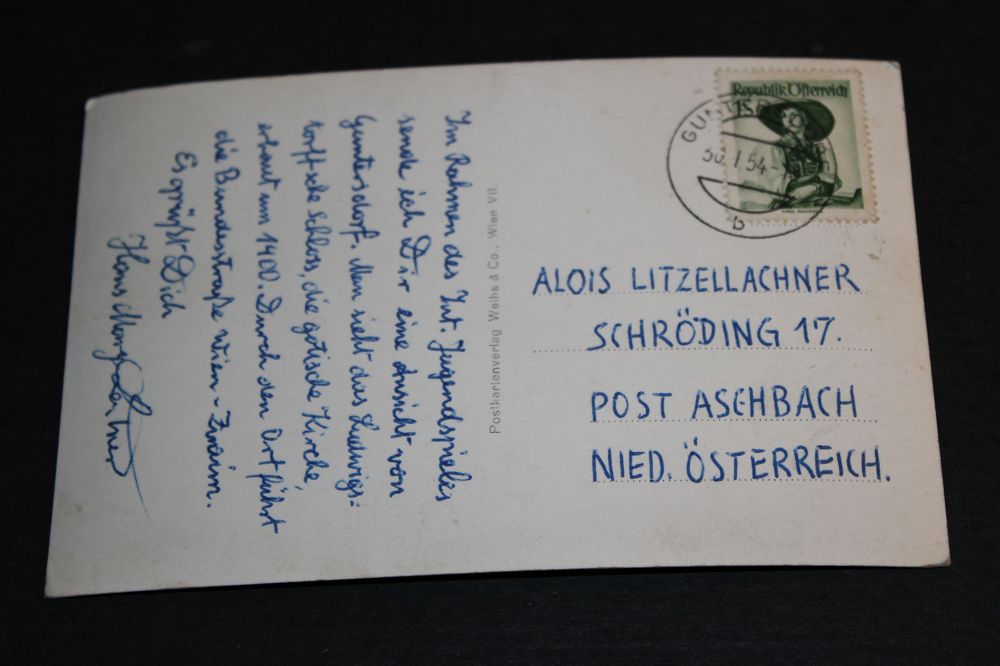 Im Rahmen des Int. Jugendspieles
sende ich Dir eine Ansicht von
Guntersdorf. Man sieht das Ludwigs=
torffsche Schloss, die gotische Kirche,
erbaut um 1400. Durch den Ort führt
die Bundesstraße Wien - Znaim.
Es grüßt Dich
Hans
Postkartenverlag Weihs & Co., Wien VII.
Republik Österreich
1S
30. 1. 54
b
ALOIS LITZELLACHNER
SCHRÖDING 17.
POST ASCHBACH
NIED. ÖSTERREICH.